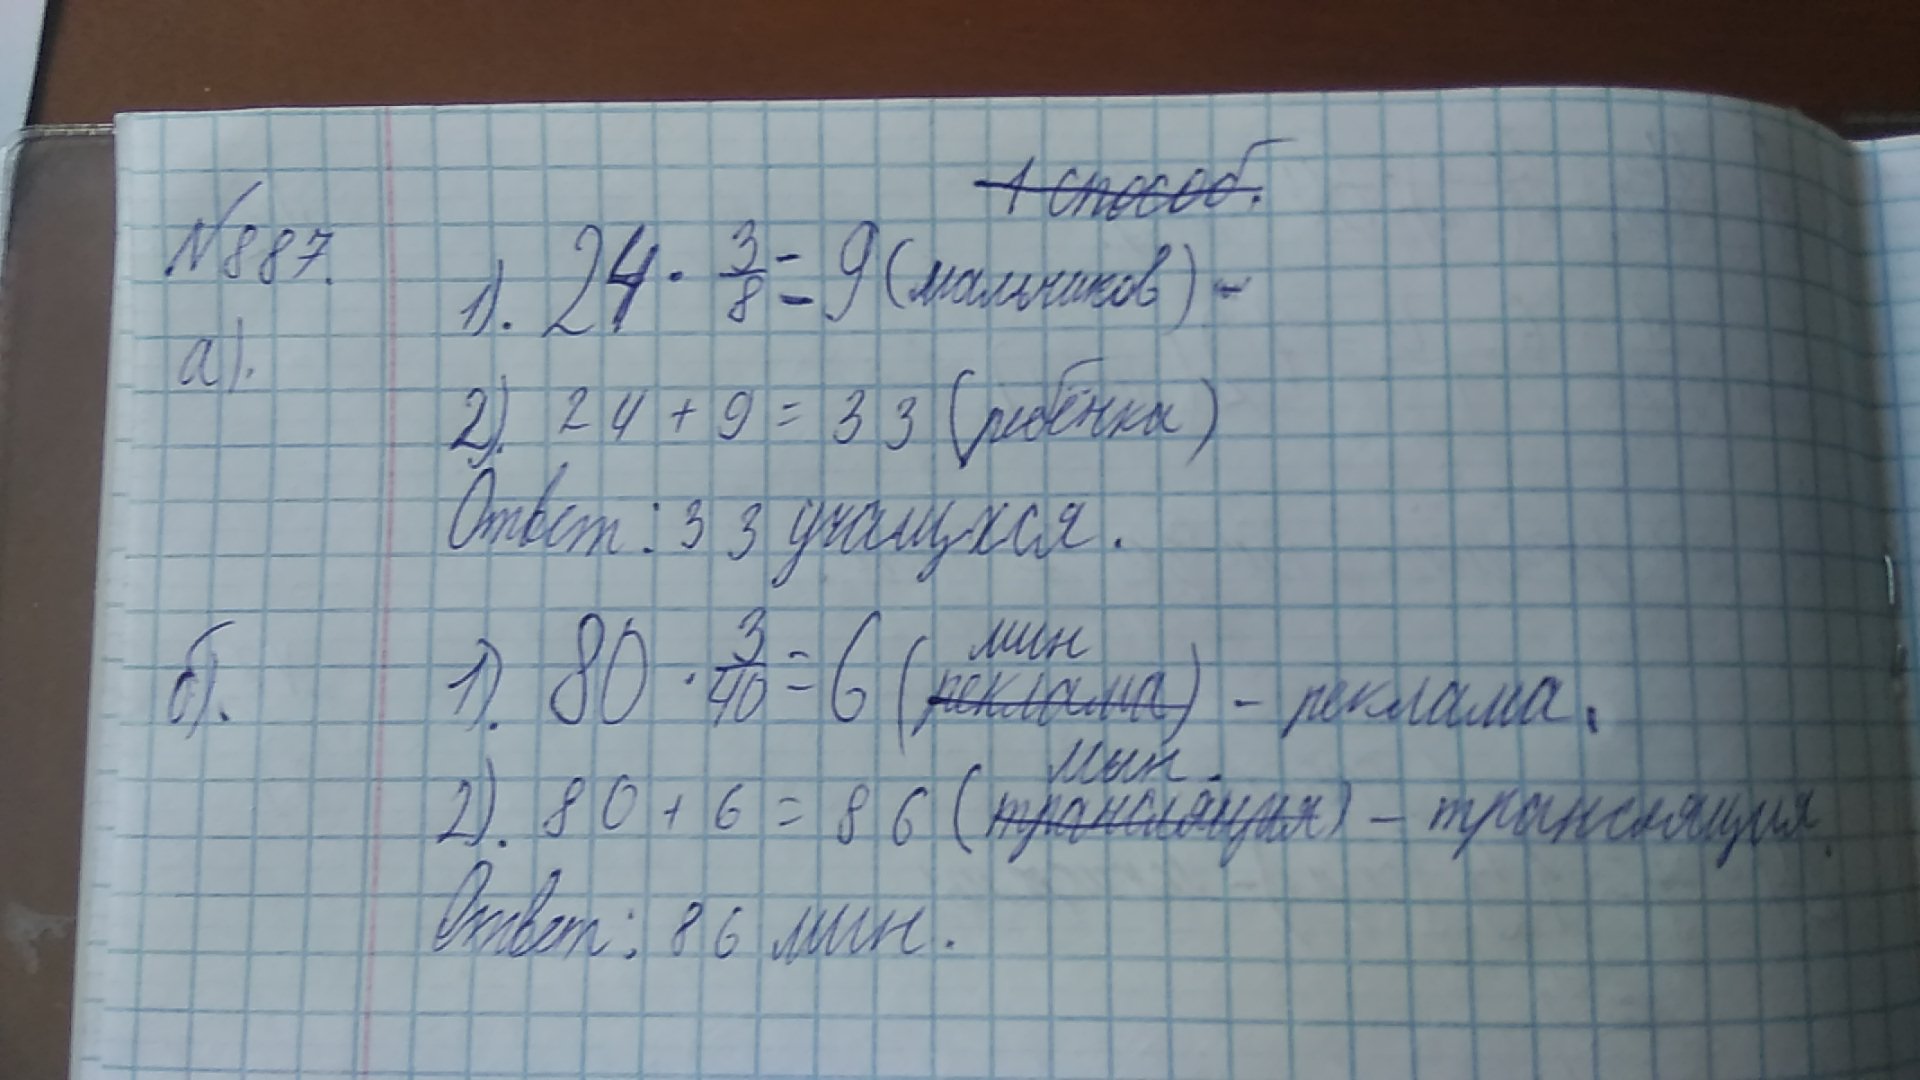 1 способ.
№887.
а). 1). 24 · 3/8 = 9 (мальчиков) -
2). 24 + 9 = 33 (ребёнка)
Ответ: 33 учащихся.
б). 1). 80 · 3/40 = 6 (реклама) мин - реклама.
2). 80 + 6 = 86 (трансляция) мин. - трансляция.
Ответ: 86 мин.